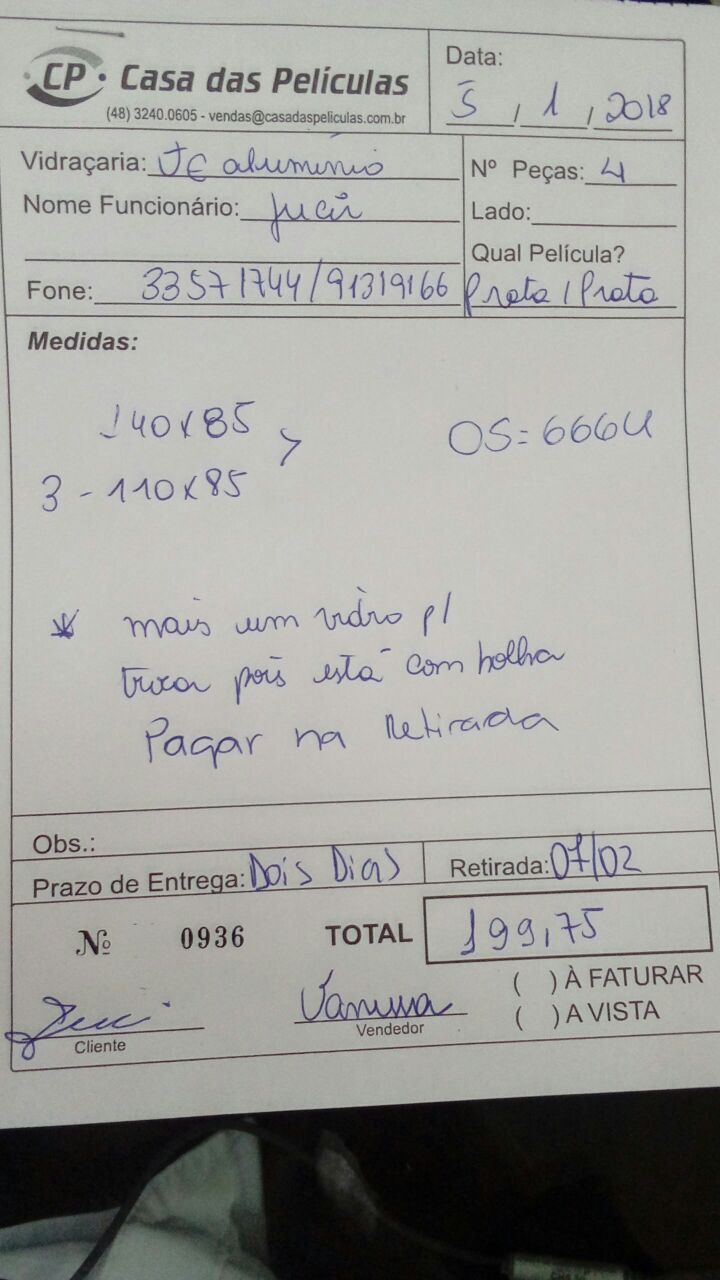 CP Casa das Películas
(48) 3240.0605 - vendas@casadaspeliculas.com.br
Data: 5 / 1 / 2018
Vidraçaria: JC aluminio
Nome Funcionário: Juci
Fone: 33571744/91319166
Nº Peças: 4
Lado:
Qual Película?
Prata / Prata
Medidas:
140x85
3 - 110x85
OS= 6664
* mais um vidro p/
troca pois está com bolha
Pagar na Retirada
Obs.:
Prazo de Entrega: Dois Dias
Retirada: 07/02
Nº 0936 TOTAL 199,75
( ) À FATURAR
( ) A VISTA
Cliente
Vanessa
Vendedor